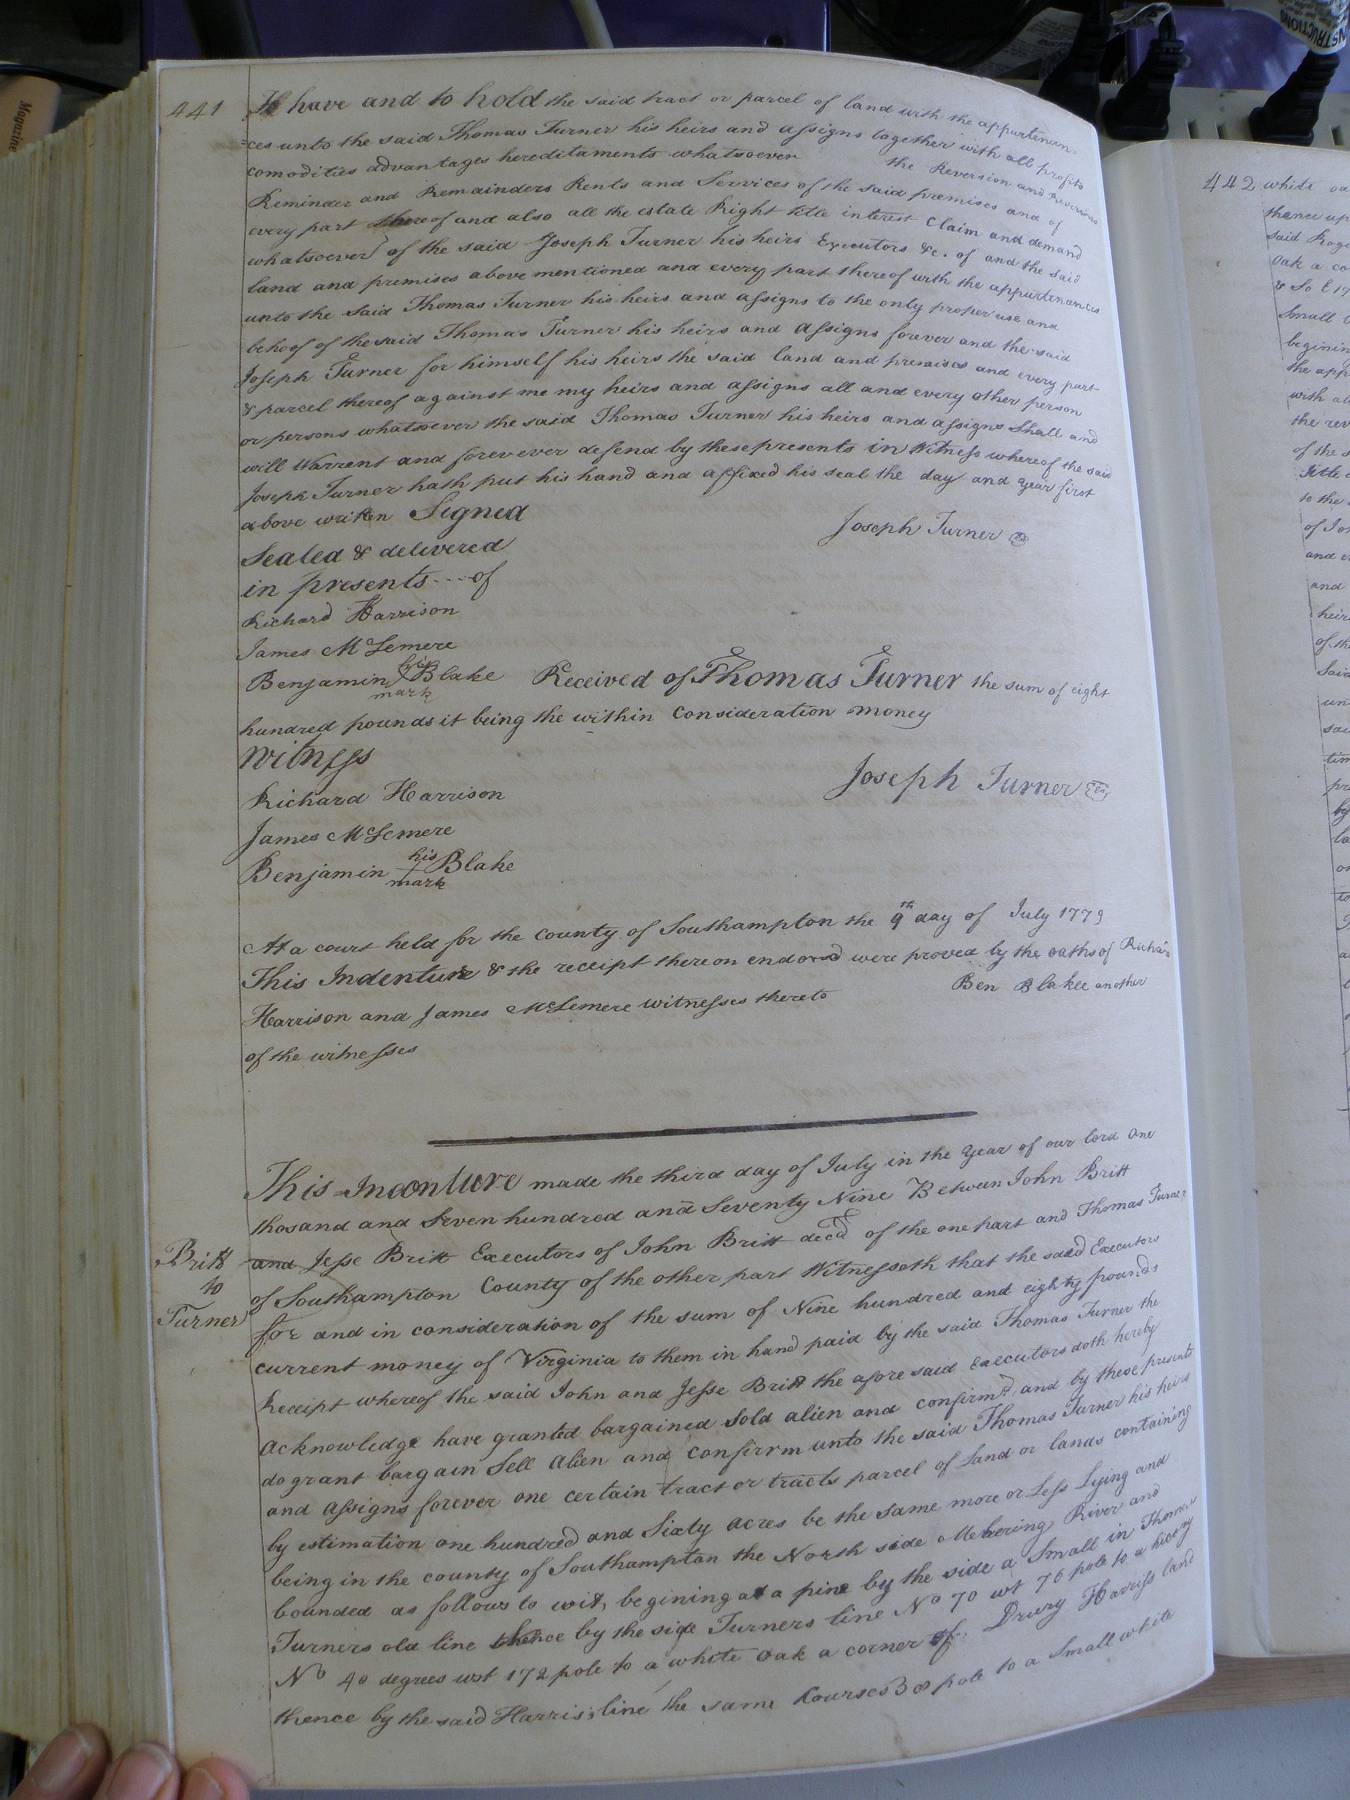 441
To have and to hold the said tract or parcel of land with the appurtenan=
=ces unto the said Thomas Turner his heirs and assigns together with all profits
comodities advantages hereditaments whatsoever the Reversion and Reversions
Reminder and Remainders Rents and Services of the said premises and of
every part thereof and also all the estate Right title interest Claim and demand
whatsoever of the said Joseph Turner his heirs Executors &c. of and the said
land and premises above mentioned and every part thereof with the appurtenances
unto the said Thomas Turner his heirs and assigns to the only proper use and
behoof of the said Thomas Turner his heirs and assigns forever and the said
Joseph Turner for himself his heirs the said land and premises and every part
& parcel thereof against me my heirs and assigns all and every other person
or persons whatsoever the said Thomas Turner his heirs and assigns Shall and
will Warrent and forevever defend by these presents in Witness whereof the said
Joseph Turner hath put his hand and affixed his seal the day and year first
above written Signed Joseph Turner
Sealed & delivered
in presents --- of
Richard Harrison
James McLemere
Benjamin his mark Blake Received of Thomas Turner the sum of eight
hundred pounds it being the within Consideration money
Witness
Richard Harrison Joseph Turner
James McLemere
Benjamin his mark Blake
At a court held for the County of Southampton the 9th day of July 1779
This Indenture & the receipt thereon endorsd were proved by the oaths of
Harrison and James McLemere witnesses thereto Ben Blakee another
of the witnesses
This Indenture made the third day of July in the year of our lord one
thosand and Seven hundred and Seventy Nine Between John Britt
and Jesse Britt Executors of John Britt decd of the one part and Thomas Turner
of Southampton County of the other part Witnesseth that the said Executors
Britt
to
Turner
for and in consideration of the sum of Nine hundred and eighty pounds
current money of Virginia to them in hand paid by the said Thomas Turner the
Receipt whereof the said John and Jesse Britt the afore said Executors doth hereby
acknowledge have granted bargained Sold alien and confirmd and by these presents
do grant bargain Sell Alien and Confirm unto the said Thomas Turner his heirs
and assigns forever one certain tract or tracts parcel of Land or lands containing
by estimation one hundred and Sixty acres be the Same more or Less Lying and
being in the county of Southampton the North side Mehering River and
bounded as follows to wit, begining at a pine by the side a Small in Thomas
Turners old line thence by the side Turners line No 70 wt 76 pole to a hickory
No 40 degrees wst 172 pole to a white oak a corner of Drury Harriss land
thence by the said Harris's line the same Courses 38 pole to a Small white
442 white
thence up
said
oak a
Small
begining
the
with
the
of the
Title
to the
of
and
and
of the
said